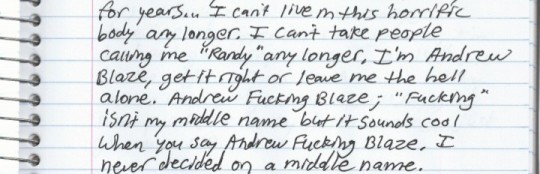 for years... I can't live in this horrific
body any longer. I can't take people
calling me "Randy" any longer. I'm Andrew
Blaze, get it right or leave me the hell
alone. Andrew Fucking Blaze; "Fucking"
isn't my middle name but it sounds cool
when you say Andrew Fucking Blaze. I
never decided on a middle name.